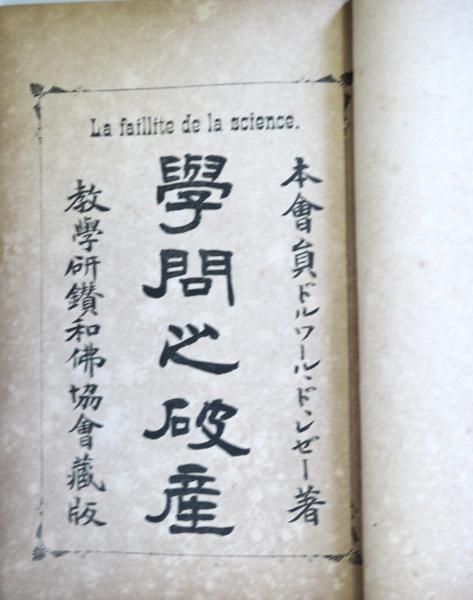 La faillite de la science.
本會員ドルワール、ドレゼー著
學問之破産
教學研鑚和佛協會藏版